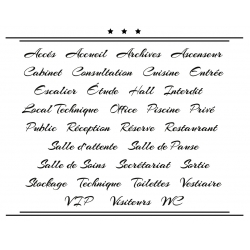 Accès Accueil Archives Ascenseur
Cabinet Consultation Cuisine Entrée
Escalier Étude Hall Interdit
Local Technique Office Piscine Privé
Public Réception Réserve Restaurant
Salle d'attente Salle de Pause
Salle de Soins Secrétariat Sortie
Stockage Technique Toilettes Vestiaire
VIP Visiteurs WC